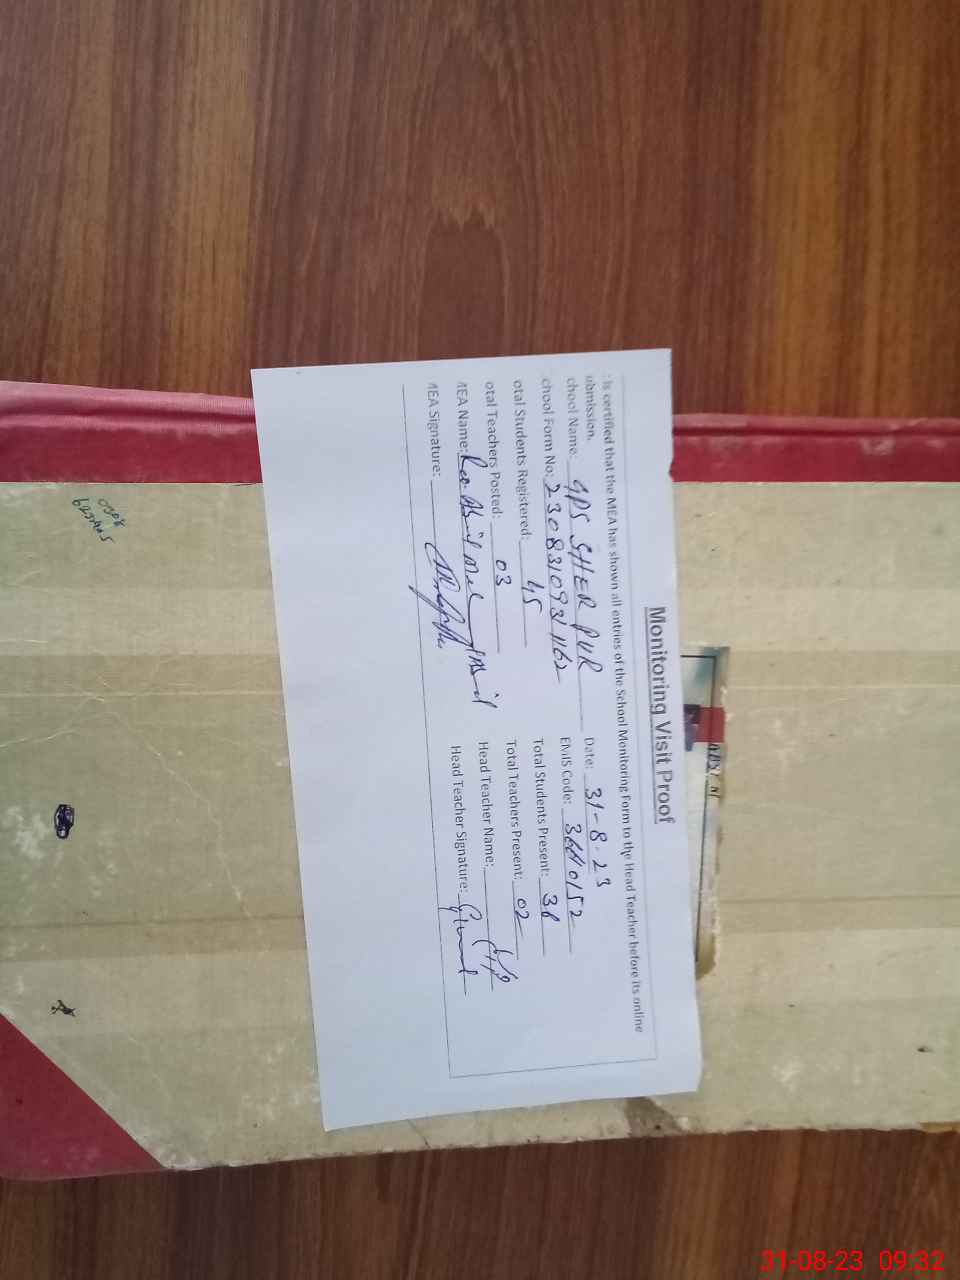 Monitoring Visit Proof
: is certified that the MEA has shown all entries of the School Monitoring Form to the Head Teacher before its online
ubmission.
chool Name: GPS SHER PUR Date: 31-8-23
chool Form No: 2308310931162 EMIS Code:
otal Students Registered: 45 Total Students Present: 38
otal Teachers Posted: 03 Total Teachers Present: 02
MEA Name: Head Teacher Name:
MEA Signature: Head Teacher Signature:
31-08-23 09:32